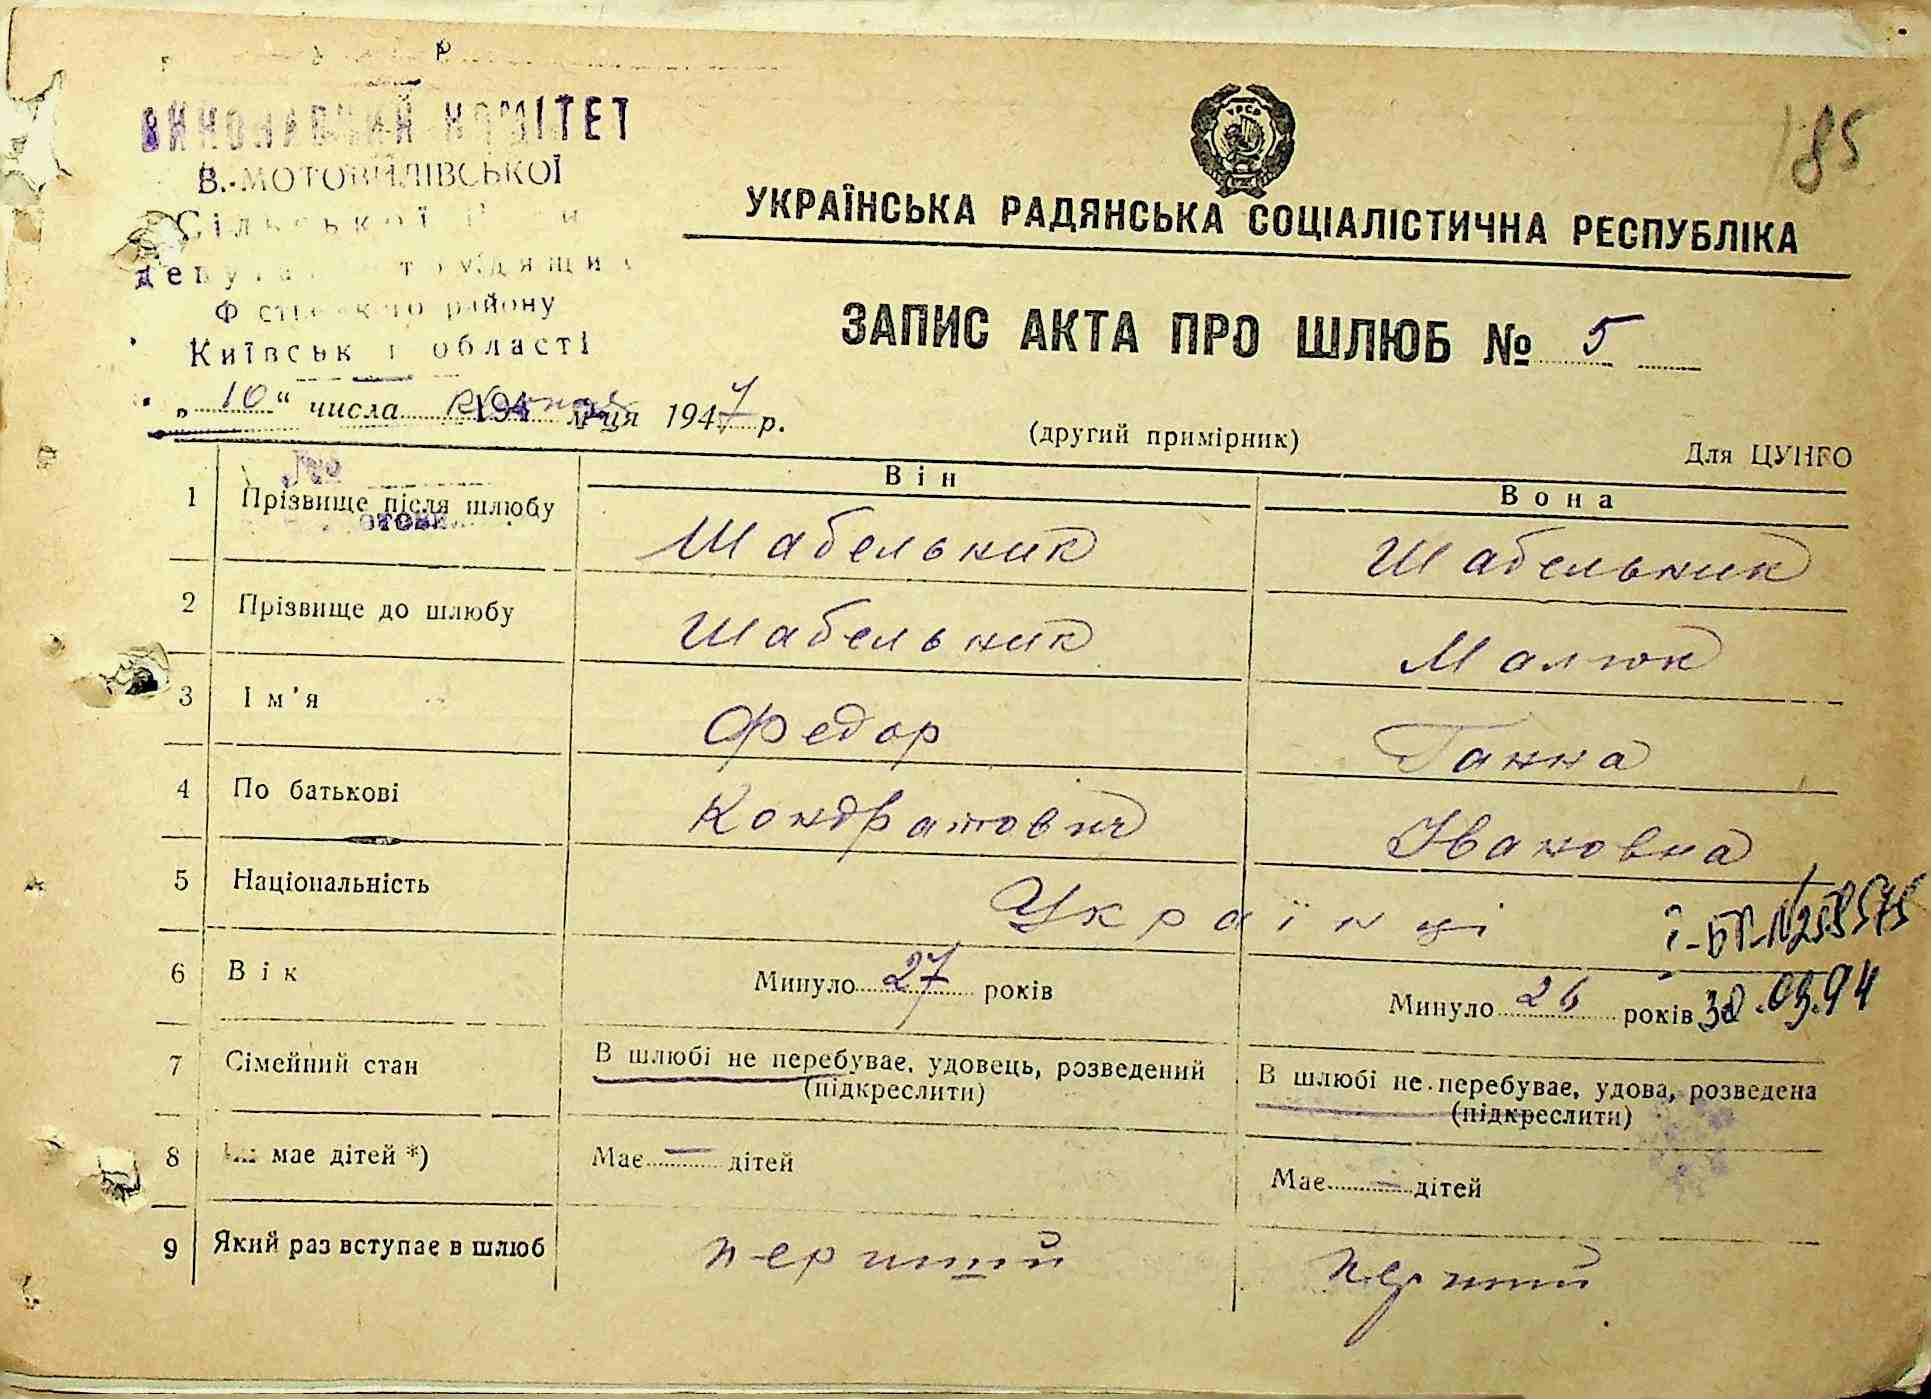 ВИКОНАВЧИЙ КОМІТЕТ
В.-МОТОВИЛІВСЬКОЇ
Сільської
депута трудящих
Ф стівського району
Київської області
185
УКРАЇНСЬКА РАДЯНСЬКА СОЦІАЛІСТИЧНА РЕСПУБЛІКА
ЗАПИС АКТА ПРО ШЛЮБ № 5
„10“ числа м-ця 1947 р.
(другий примірник)
Для ЦУНГО
№
Він
Вона
1 Прізвище після шлюбу Шабельник Шабельник
2 Прізвище до шлюбу Шабельник Малюк
3 Ім'я Федор Ганна
4 По батькові Кондратович Івановна
5 Національність Українці
І-БП-№258575
6 Вік Минуло 27 років Минуло 26 років
30.03.94
7 Сімейний стан В шлюбі не перебуває, удовець, розведений В шлюбі не перебуває, удова, розведена
(підкреслити) (підкреслити)
8 має дітей *) Має — дітей Має — дітей
9 Який раз вступає в шлюб перший перший